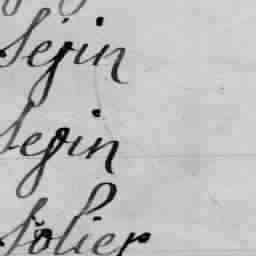 Sejin
Segin
Solier